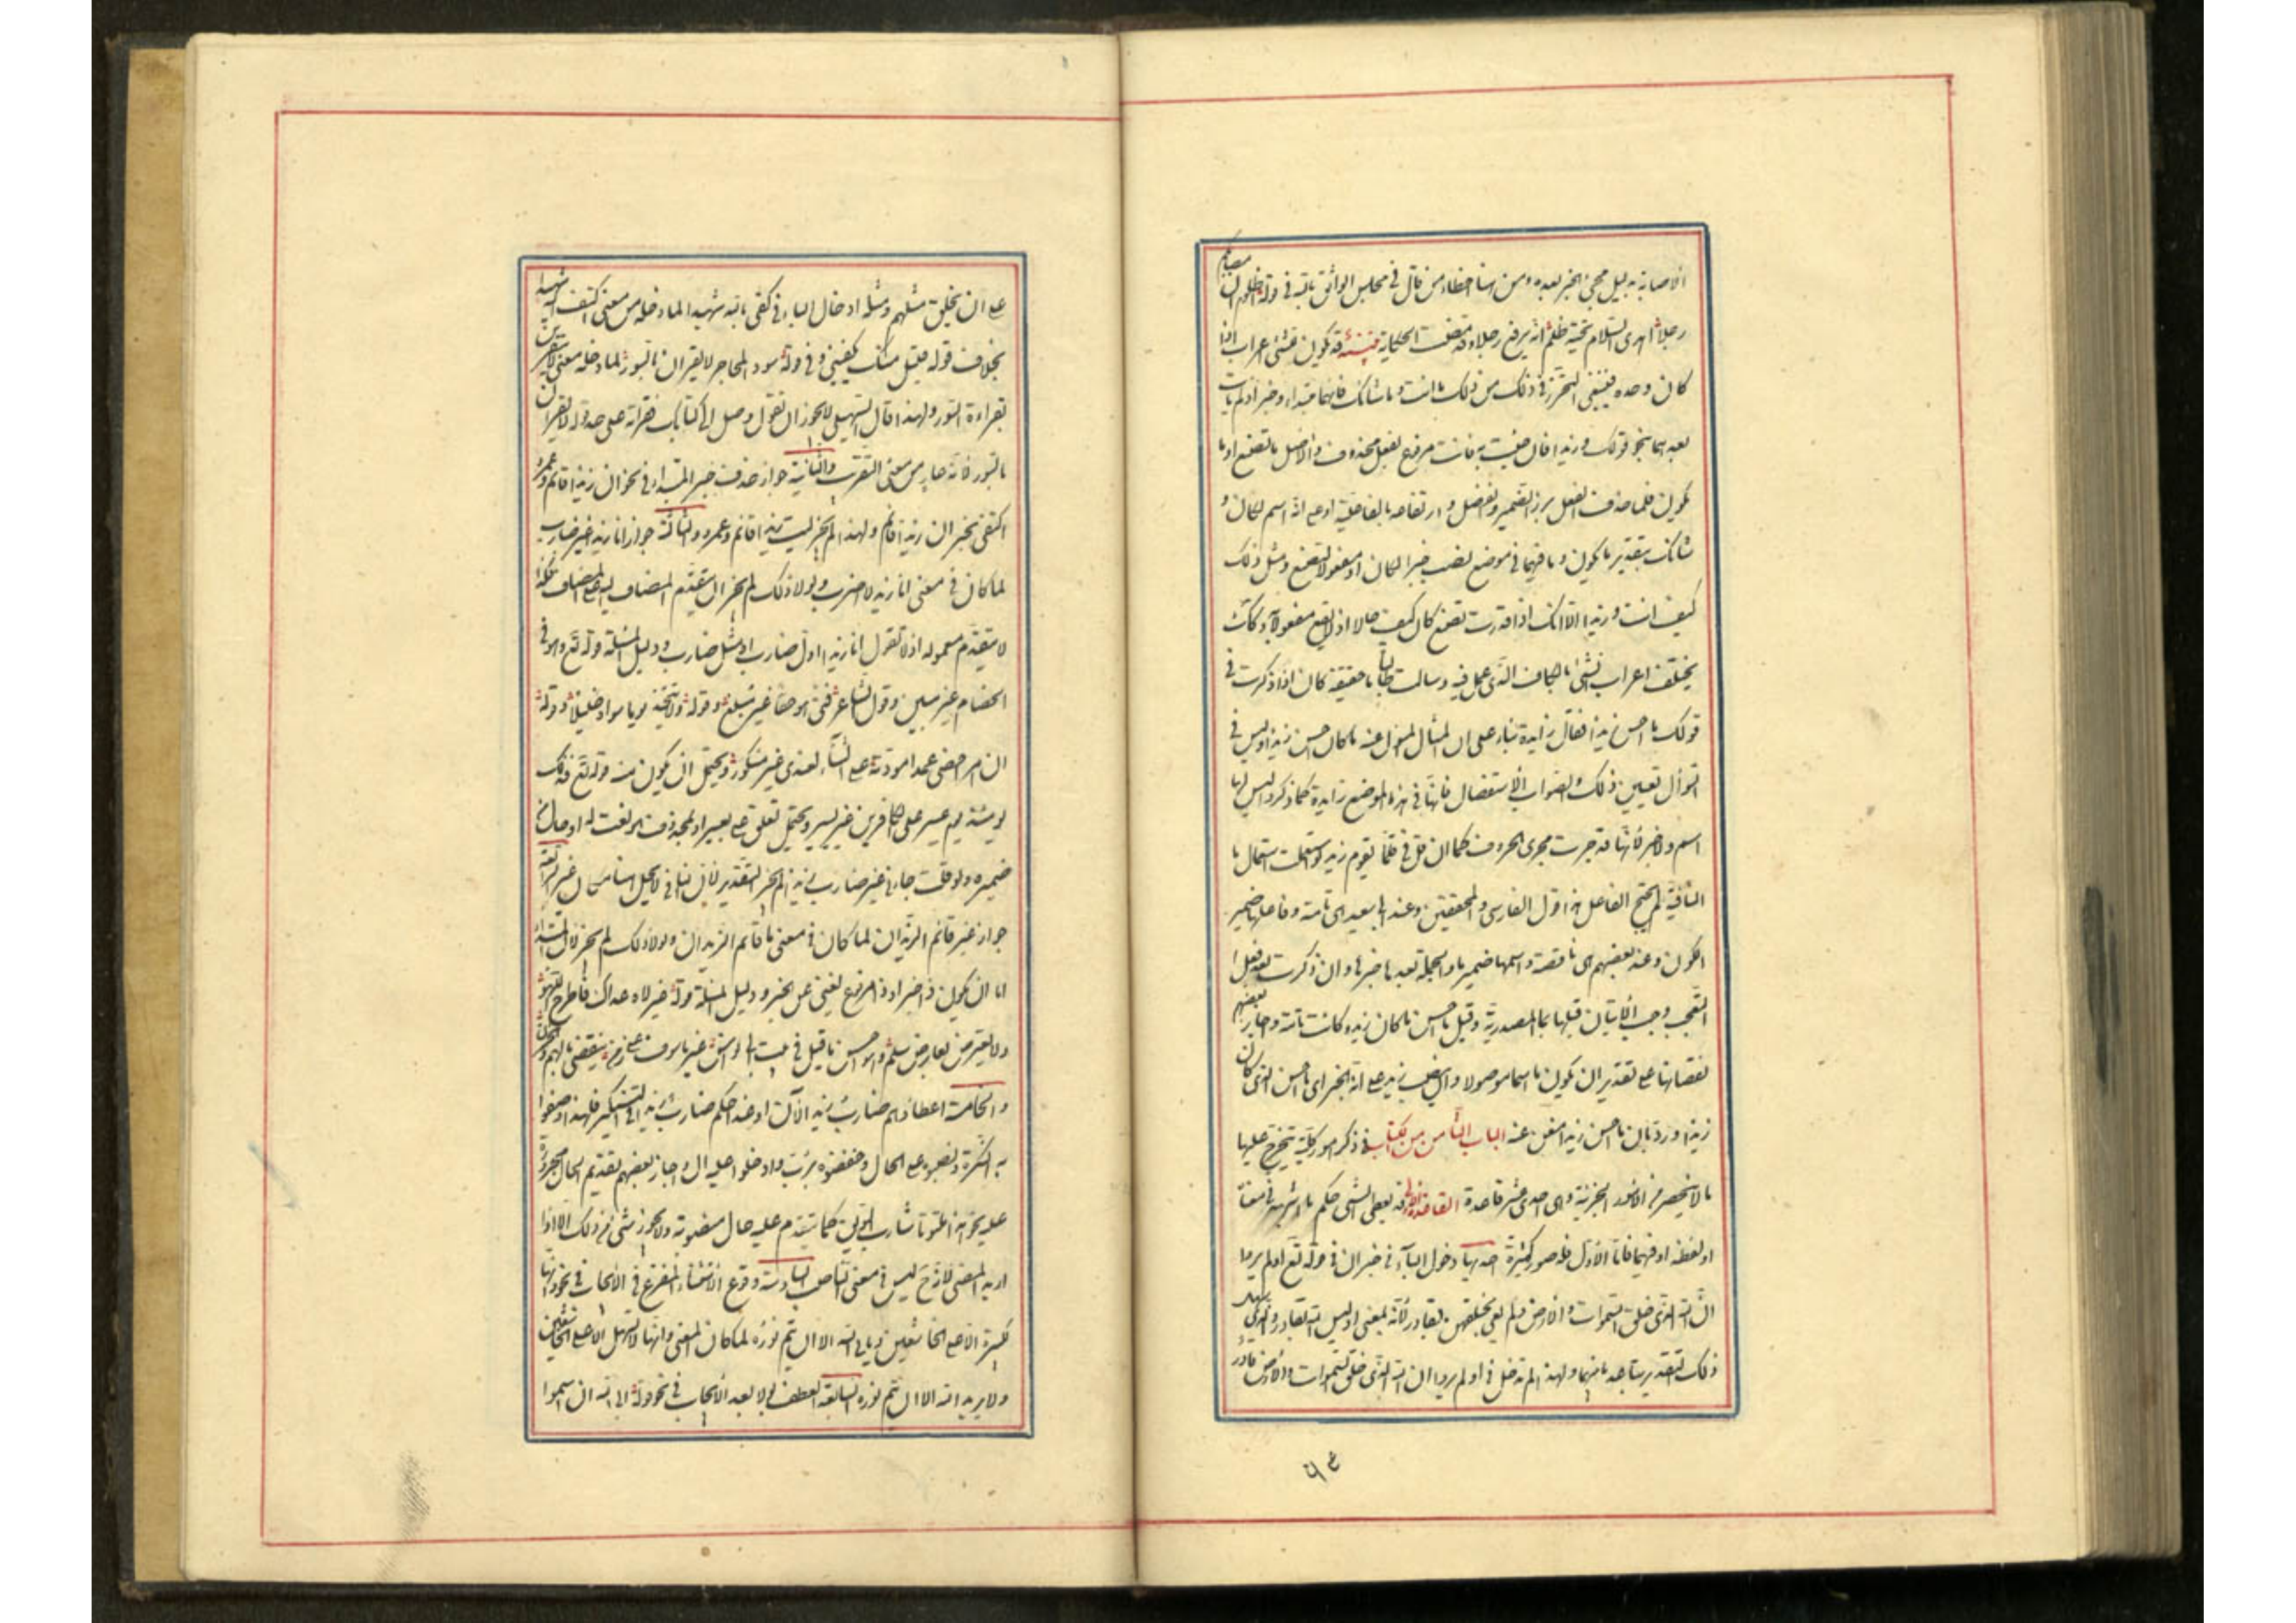 الاصابة بدليل مجئ الخبر بعده ومن هنا اخطاء من قال فى مجلس الواثق بالله فى قوله اظلوم ان مصابكم
رجلا اهدى السلام تحية ظلم انه برفع رجلا وقد مضت الحكاية تنبيه قد يكون للشئ اعراب اذا
كان وحده فينبغى التحرز فى ذلك من ذلك ما انت وما شانك فانهما مبتداء وخبر اذا لم يات
بعدهما نحو قولك وزيدا فان جئت به فانت مرفوع بفعل محذوف والاصل ما تصنع او ما
تكون فلما حذف الفعل برز الضمير وانفصل وارتفاعه بالفاعلية او على انه اسم لكان و
شانك بتقدير ما يكون وما فيهما فى موضع نصب خبرا لكان او مفعولا لتصنع ومثل ذلك
كيف انت وزيدا الا انك اذا قدرت تصنع كان كيف حالا اذ لا يقع مفعولا به وكذلك
يختلف اعراب الشئ باعتبار المحل الذى يحل فيه وسالت طالبا ما حقيقة كان اذا ذكرت فى
قولك ما احسن زيدا فقال زايدة بناء على ان المثال المسؤل عنه ما كان احسن زيدا وليس فى
السؤال تعيين ذلك والصواب الاستفصال فانها فى هذا الموضع زايدة كما ذكر وليس لها
اسم ولا خبر لانها قد جرت مجرى الحروف كما ان قل فى قلما يقوم زيد لما استعملت استعمال ما
النافية لم تحتج الفاعل هذا قول الفارسى والمحققين وعند ابى سعيد هى تامة وفاعلها ضمير
الكون وعند بعضهم هى ناقصة واسمها ضمير ما والجملة بعدها خبرها وان ذكرت بعد فعل
التعجب وجب الاتيان قبلها بما المصدرية وقيل ما احسن ما كان زيد وكانت تامة واجاز بعضهم
نقصانها على تقدير ان يكون ما اسما موصولا وان ينصب زيد على انه الخبر اى ما احسن الذى كان
زيدا ورد بان ما احسن زيدا مغن عنه الباب الثامن من الكتاب فى ذكر امور كلية يتخرج عليها
ما لا ينحصر من الصور الجزئية وهى احدى عشر قاعدة القاعدة الاولى قد يعطى الشئ حكم ما اشبهه فى معناه
او لفظه او فيهما فاما الاول فله صور كثيرة احديها دخول الباء فى خبر ان فى قوله تع اولم يروا
ان الله الذى خلق السموات والارض ولم يعى بخلقهن بقادر لانه بمعنى اوليس الله بقادر والذى سهل
ذلك التقدير تباعد ما بينهما ولهذا لم تدخل فى اولم يروا ان الله الذى خلق السموات والارض قادر
٥٩
على ان يخلق مثلهم ومثله ادخال الباء فى كفى بالله شهيدا لما دخله من معنى اكتف بالله شهيدا
بخلاف قوله قليل منك يكفينى وفى قوله سود المحاجر لا يقران بالسور لما دخله معنى لا يتقربن
بقراءة السور ولهذا قال السهيلى لا يجوز ان تقول وصل الى كتابك فقرات به على حد قوله لا يقران
بالسور لانه عار من معنى التقرب والثانية جواز حذف خبر المبتداء فى نحو ان زيدا قائم وعمرو
اكتفى بخبر ان زيدا قائم ولهذا لم يجز ليت زيدا قائم وعمرو والثالثة جواز انا زيدا غير ضارب
لما كان فى معنى انا زيدا لا اضرب ولولا ذلك لم يجز ان يتقدم المضاف اليه على المضاف فكذا
لا يتقدم معموله اذ لا تقول انا زيدا اول ضارب او مثل ضارب ودليل المسئلة قوله تع وهو فى
الخصام غير مبين وقول الشاعر فتى هو حقا غير ملغ وقوله ولا تتخذ يوما سواه خليلا وقوله
ان امرا خصنى عمدا مودته على التنائى لعندى غير مكفور ويحتمل ان يكون منه قوله تع فذلك
يومئذ يوم عسير على الكافرين غير يسير ويحتمل تعلق على بعسير او بمحذوف هو نعت له او حال من
ضميره ولو قلت جاءنى غير ضارب زيدا لم يجز التقديم لان النافى لا يحل هنا مكان غير الرابعة
جواز غير قائم الزيدان لما كان فى معنى ما قائم الزيدان ولولا ذلك لم يجز لان المبتداء
اما ان يكون ذا خبر او ذا مرفوع يغنى عن الخبر ودليل المسئلة قوله غير لاه عداك فاطرح اللهو
ولا تغترر بعارض سلم وهو احسن ما قيل فى بيت ابى نواس غير ماسوف على زمن ينقضى بالهم والحزن
والخامسة اعطاؤهم ضارب زيد الآن او غدا حكم ضارب زيدا فى التنكير فلهذا وصفوا
به النكرة ونصبوه على الحال وخفضوه برب وادخلوا عليه ال واجاز بعضهم تقديم حال مجروره
عليه نحو هذا ملتوتا شارب السويق كما يتقدم عليه حال منصوبه ولا يجوز شئ من ذلك الا اذا
اريد المضى لانه ح ليس فى معنى الناصب السادسة وقوع الاستثناء المفرغ فى الايجاب فى نحو وانها
لكبيرة الا على الخاشعين ويابى الله الا ان يتم نوره لما كان المعنى وانها لا تسهل الا على الخاشعين
ولا يريد الله الا ان يتم نوره السابعة العطف بولا بعد الايجاب فى نحو قوله ابى الله ان اسموا